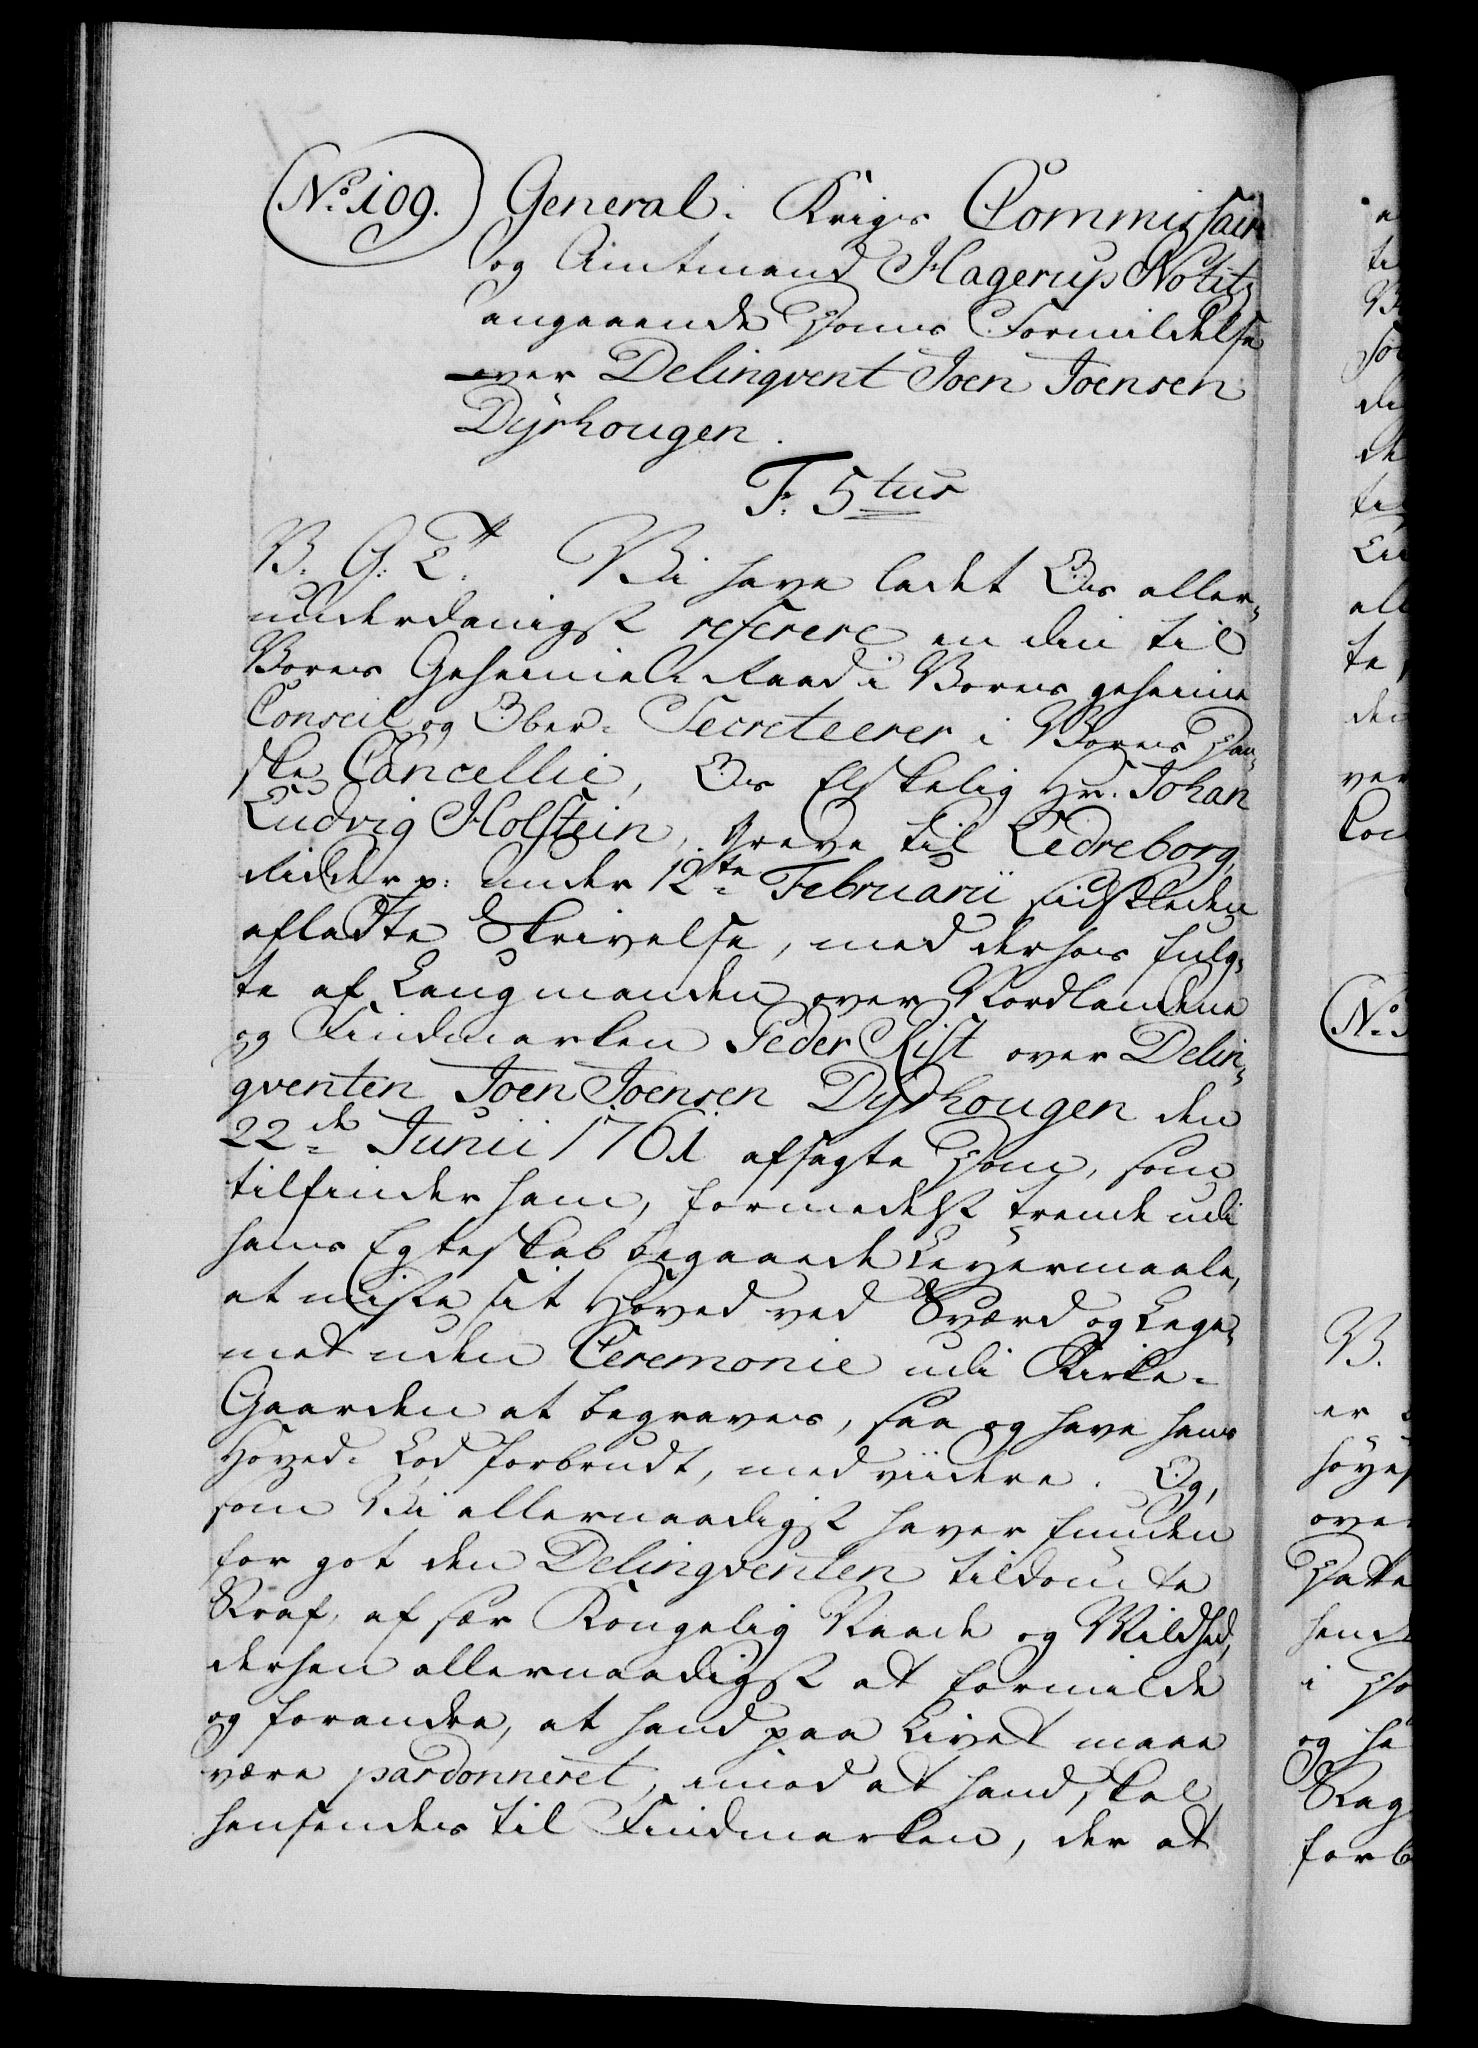 No. 109. General-Krigs Commissair
og Amtmand Hagerup Notitz
angaaende Doms Formildelse
over Delinqvent Joen Joensen
Dyrhougen.
F. 5tus
V. G. T. Vi have ladet Os aller-
underdanigst referere en din til
Vores Geheime-Raad i Vores geheime
Conseil og Ober-Secreteerer i Vores Dan-
ske Cancellie, Os Elskelig Hr. Johan
Ludvig Holstein, Greve til Ledreborg,
Ridder p: under 12te Februarii sidstleden
afladte Skrivelse, med derhos fulg-
te af Laugmanden over Nordlandene
og Findmarken Peder Rist over Delin-
qventen Joen Joensen Dyrhougen den
22de Junii 1761 afsagte Dom, som
tilfinder ham, formedelst trende udi
hans Egteskab begaaede Leyermaale,
at miste sit Hoved ved Sværd og Lege-
met uden Ceremonie udi Kirke-
Gaarden at begraves, saa og have hans
Hoved-Lod forbrudt, med viidere. Og,
som Vi allernaadigst haver funden
for got den Delinqventen tildømte
Straf, af sær Kongelig Naade og Mildhed,
derhen allernaadigst at formilde
og forandre, at hand paa Livet maae
være pardonneret, imod at hand skal
hensendes til Findmarken, der at